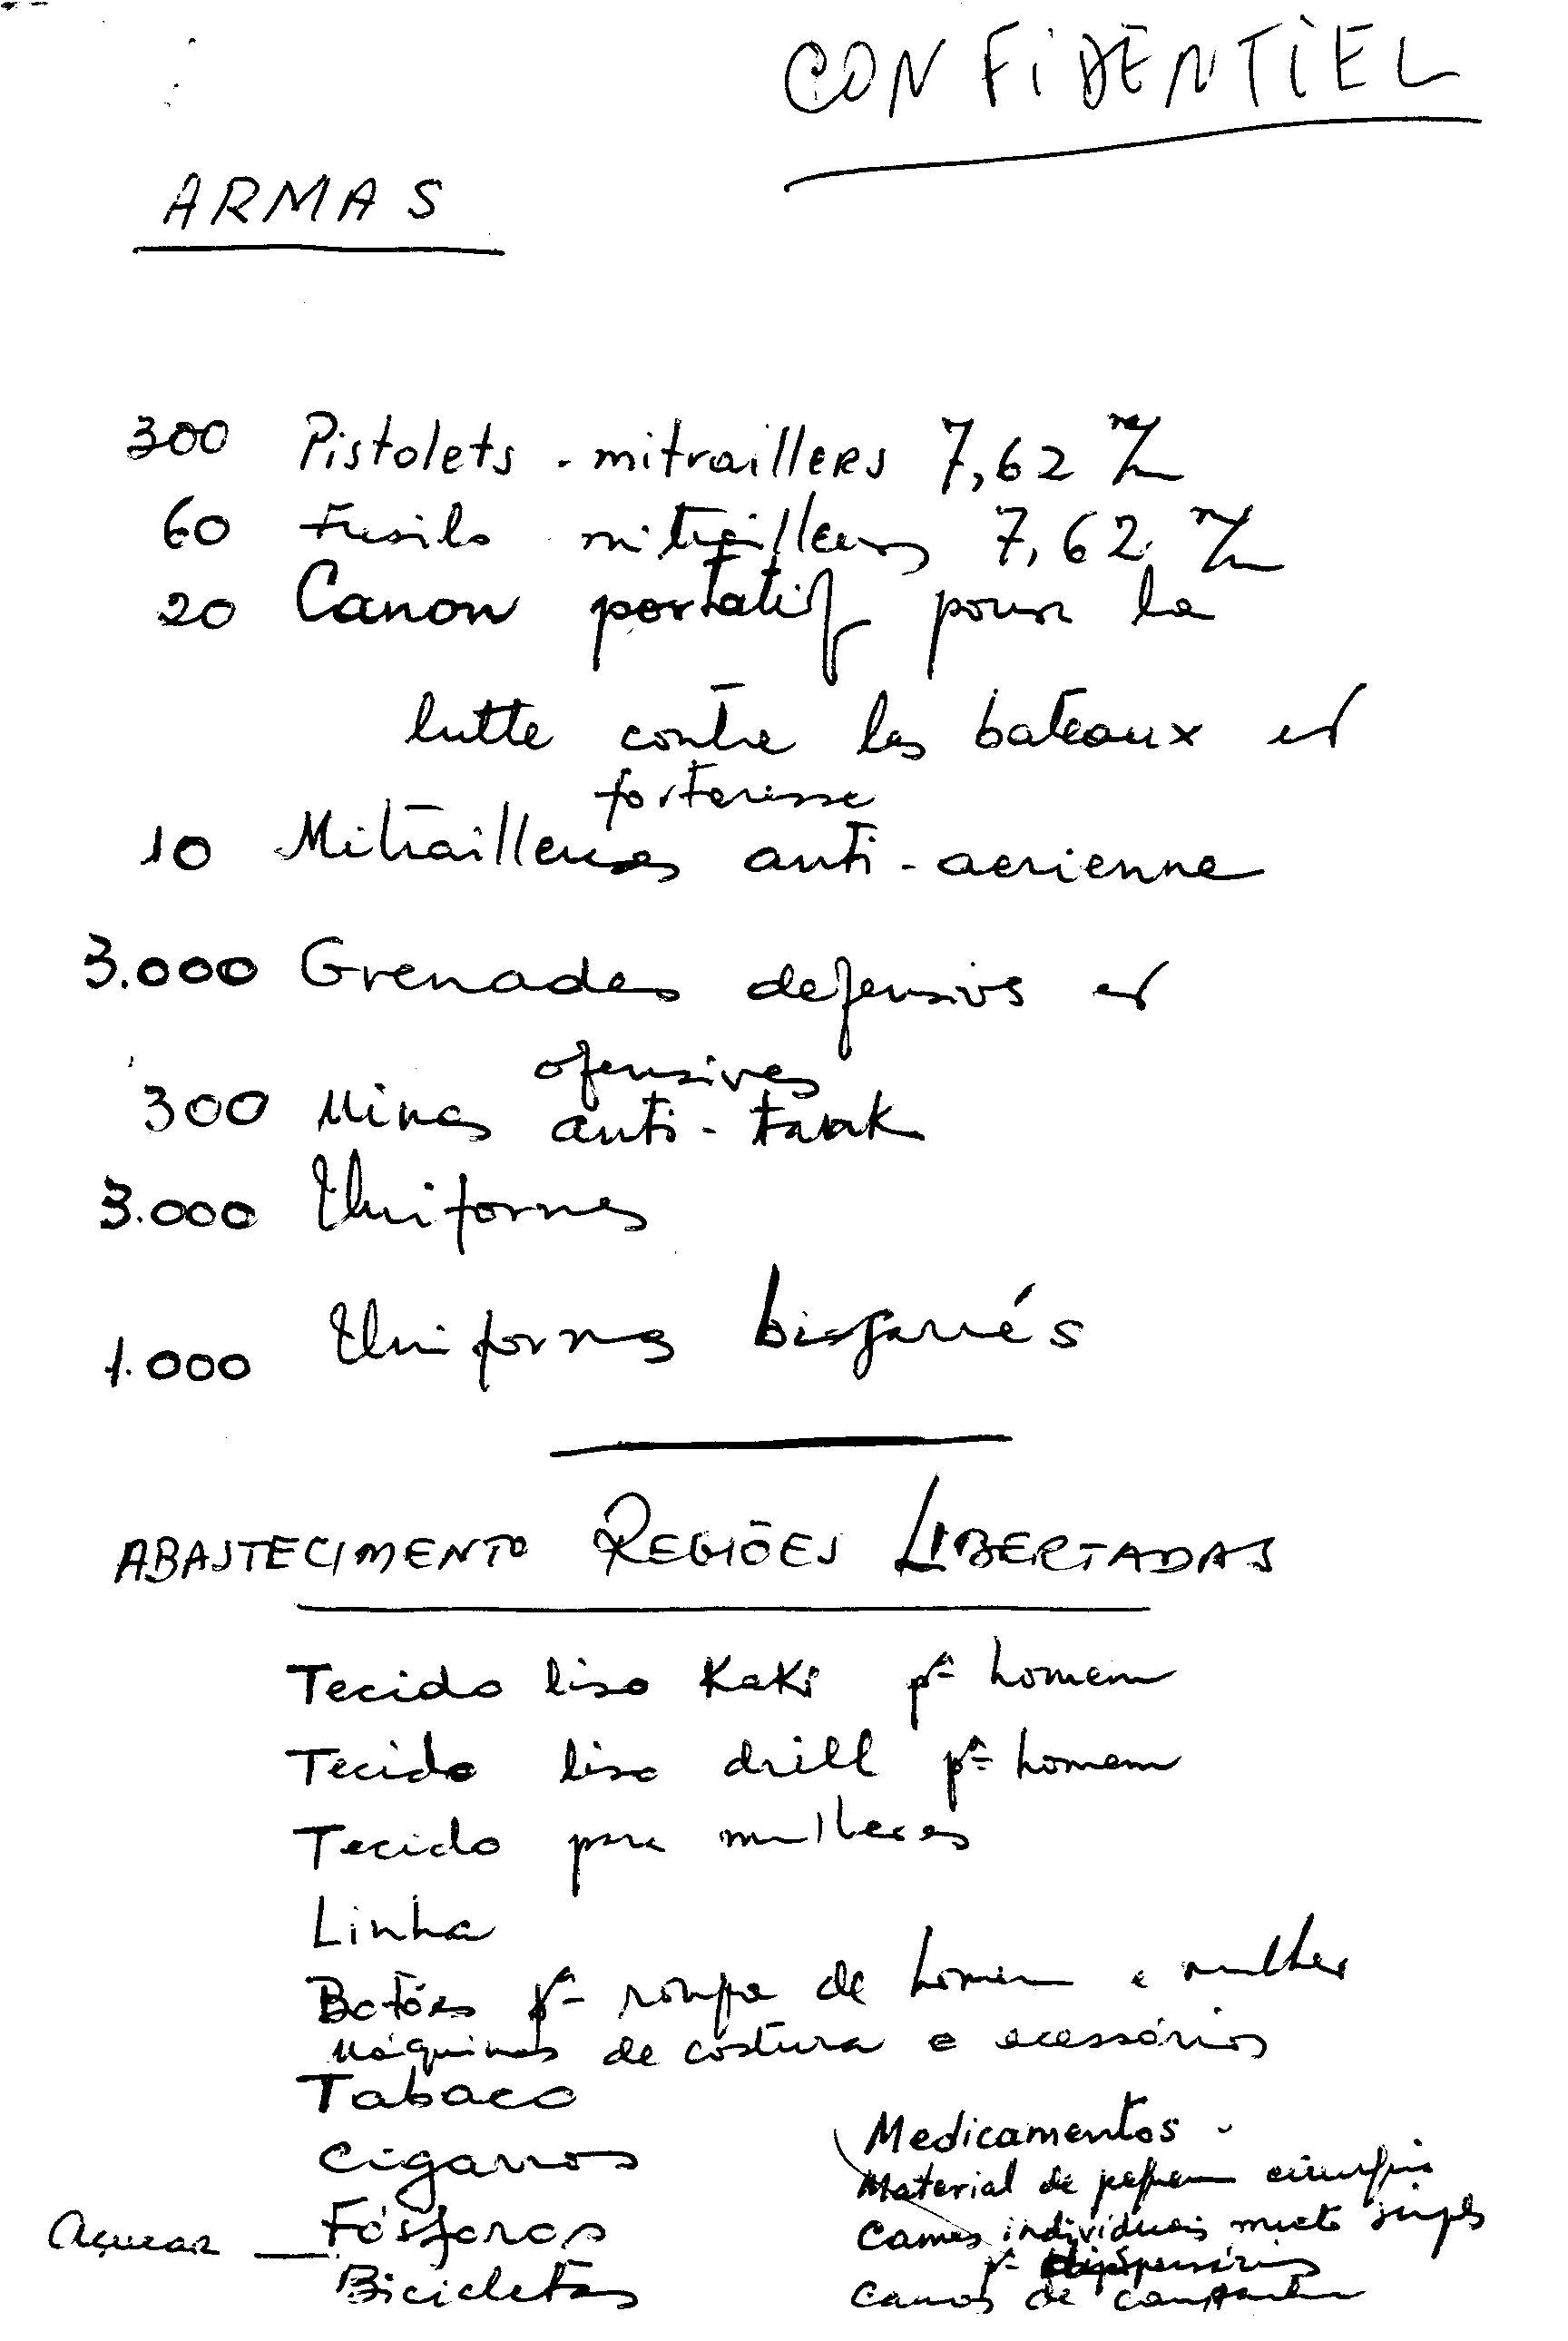 CONFIDENTIEL
ARMAS
300 Pistolets - mitraillers 7,62 m/m
60 Fusils mitrailleurs 7,62 m/m
20 Canon portatif pour la
lutte contre les bateaux et
forteresse
10 Mitrailleuses anti-aerienne
3.000 Grenades defensivs et
ofensives
300 Mines anti-tank
3.000 Uniformes
1.000 Uniformes bigarrés
ABASTECIMENTO REGIÕES LIBERTADAS
Tecido liso Kaki pª homem
Tecido liso drill pª homem
Tecido para mulheres
Linha
Botões pª roupa de homem e mulher
Máquinas de costura e acessórios
Tabaco
Cigarros
Açucar — Fósforos
Bicicletas
Medicamentos -
Material de pequena cirurgia
Camas individuais muito simples
pª dispensários
Carros de campanha